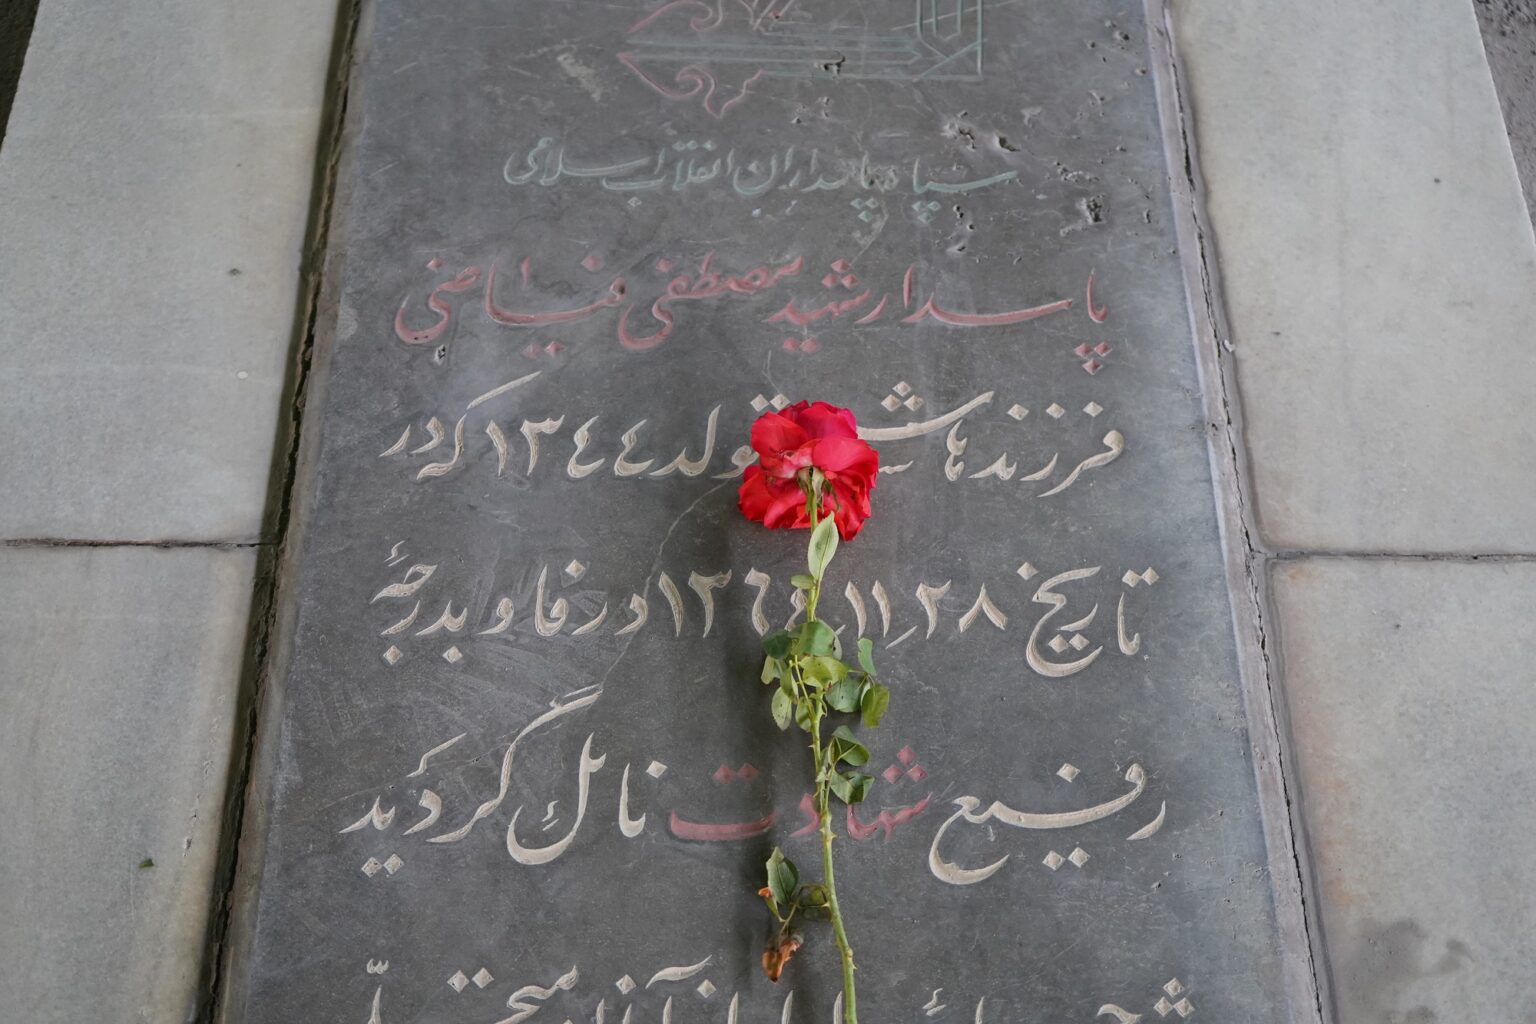 سپاه پاسداران انقلاب اسلامی
پاسدار شهید مصطفی فیاضی
فرزند تولد ۱۳۴۴ که در
تاریخ ۲۸ر۱۱ر۱۳۶۴ در فاو بدرجهٔ
رفیع شهادت نائل گردید